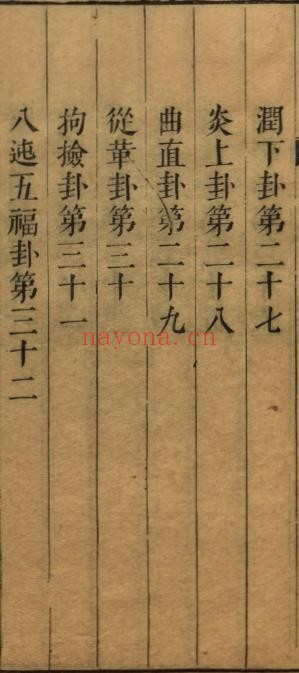 潤下卦第二十七
炎上卦第二十八
曲直卦第二十九
從革卦第三十
拘撿卦第三十一
八迍五福卦第三十二
nayona.cn